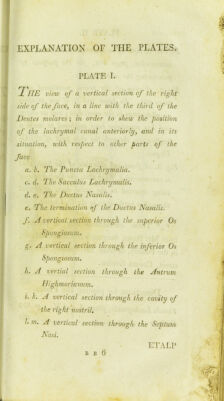 EXPLANATION OF THE PLATES.
PLATE I.
THE view of a vertical section of the right
side of the face, in a line with the third of the
Dentes molares; in order to shew the position
of the lachrymal canal anteriorly, and in its
situation, with respect to other parts of the
face
a. b. The Puncta Lachrymalia.
c. d. The Sacculus Lachrymalis.
d. e. The Ductus Nasalis.
e. The termination of the Ductus Nasalis.
f. A vertical section through the superior Os
Spongiosum.
g. A vertical section through the inferior Os
Spongiosum.
h. A vertial section through the Antrum
Highmorianum.
i. k. A vertical section through the cavity of
the right nostril.
l. m. A vertical section through the Septum
Nasi.
B B 6
ETALP